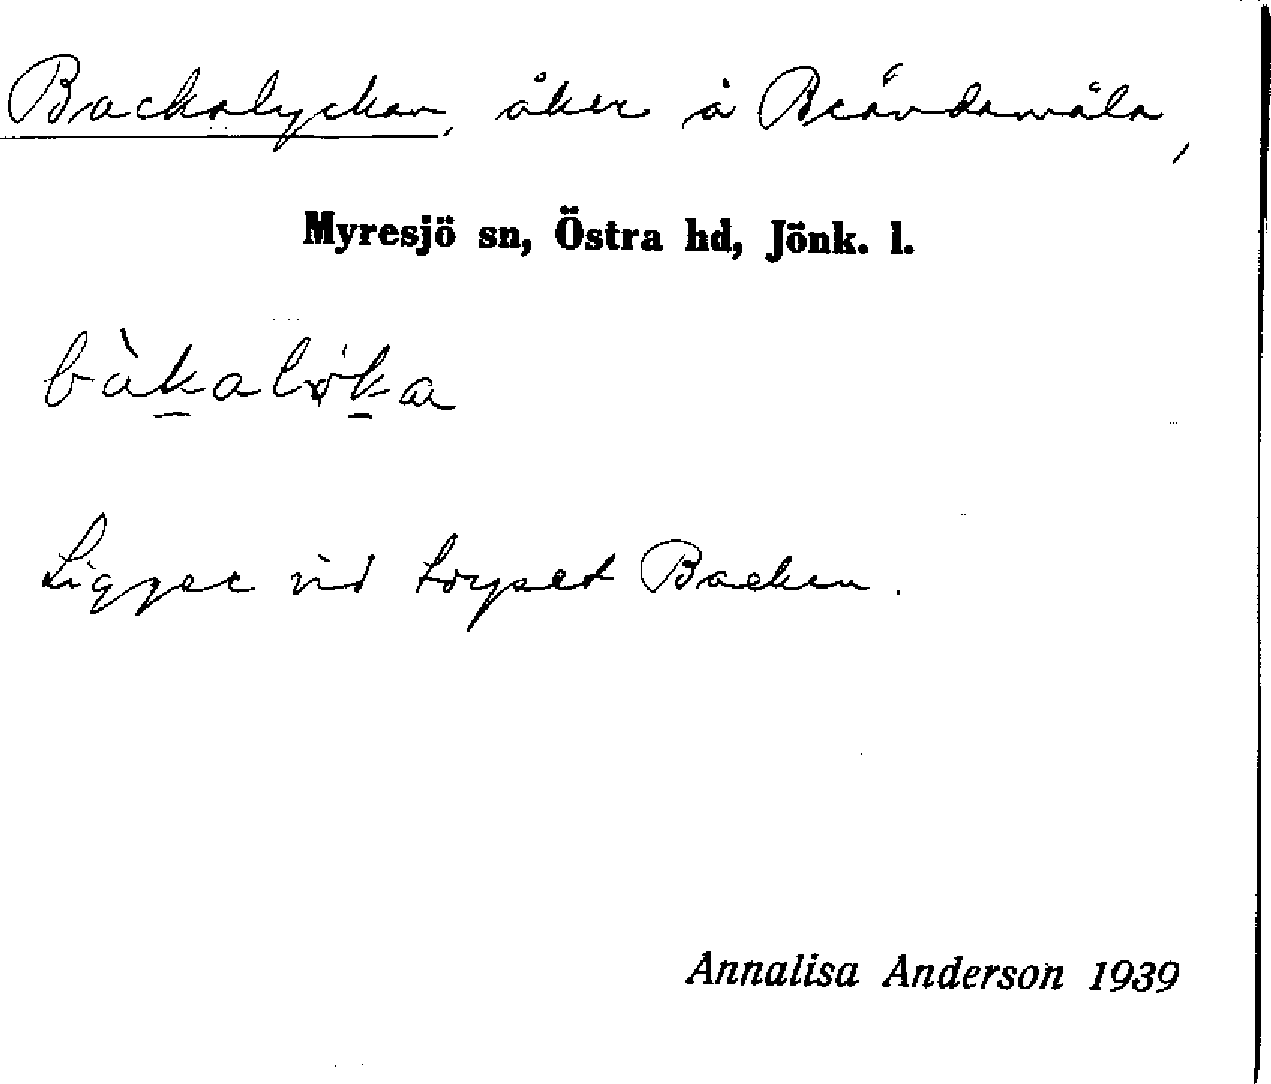 Backalyckan, åker å Brändamåla,
Myresjö sn, Östra hd, Jönk. l.
bàkaløka
Ligger vid torpet Backen.
Annalisa Anderson 1939